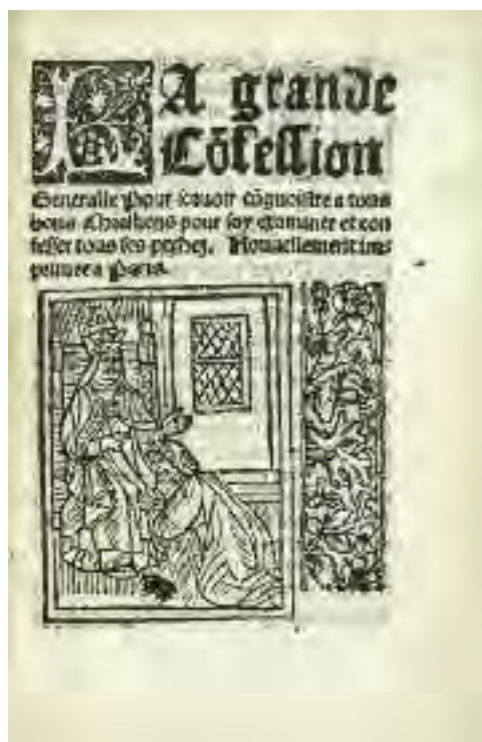 LA grande
Cõfession
Generalle Pour scavoir cõgnoistre a tous
bons Chrestiens pour soy examiner et con
fesser tous ses pechez. Nouuellement im
primee a Paris.